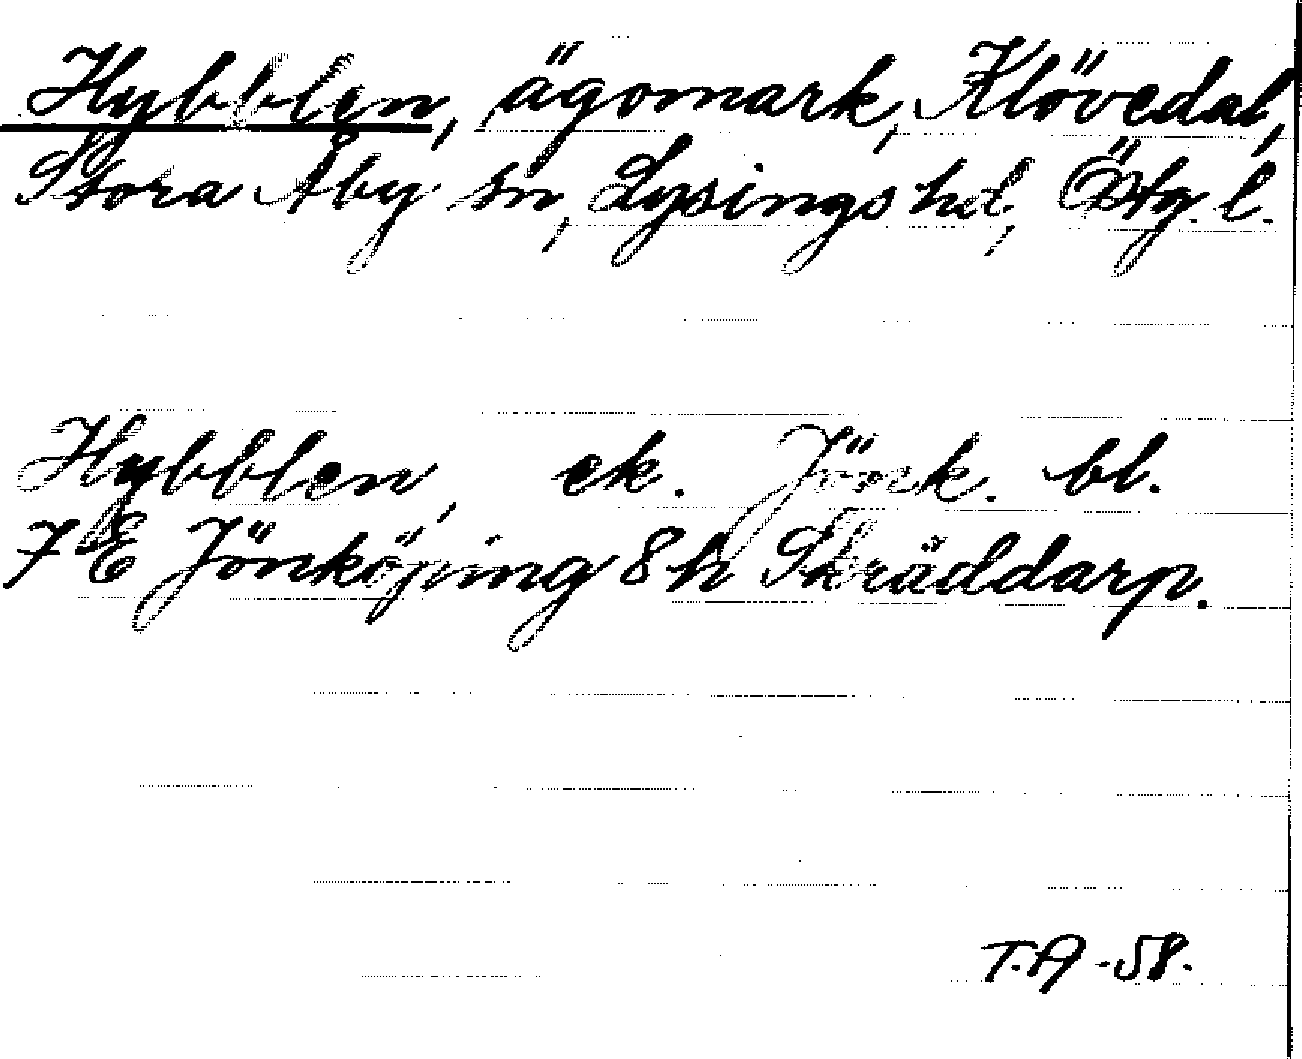 Hybblen, ägomark, Klövedal,
Stora Åby sn, Lysings hd, Östg. l.
Hybblen, ek. Jönk. bl.
7 E Jönköping 8 h Skräddarp.
T.A -58.